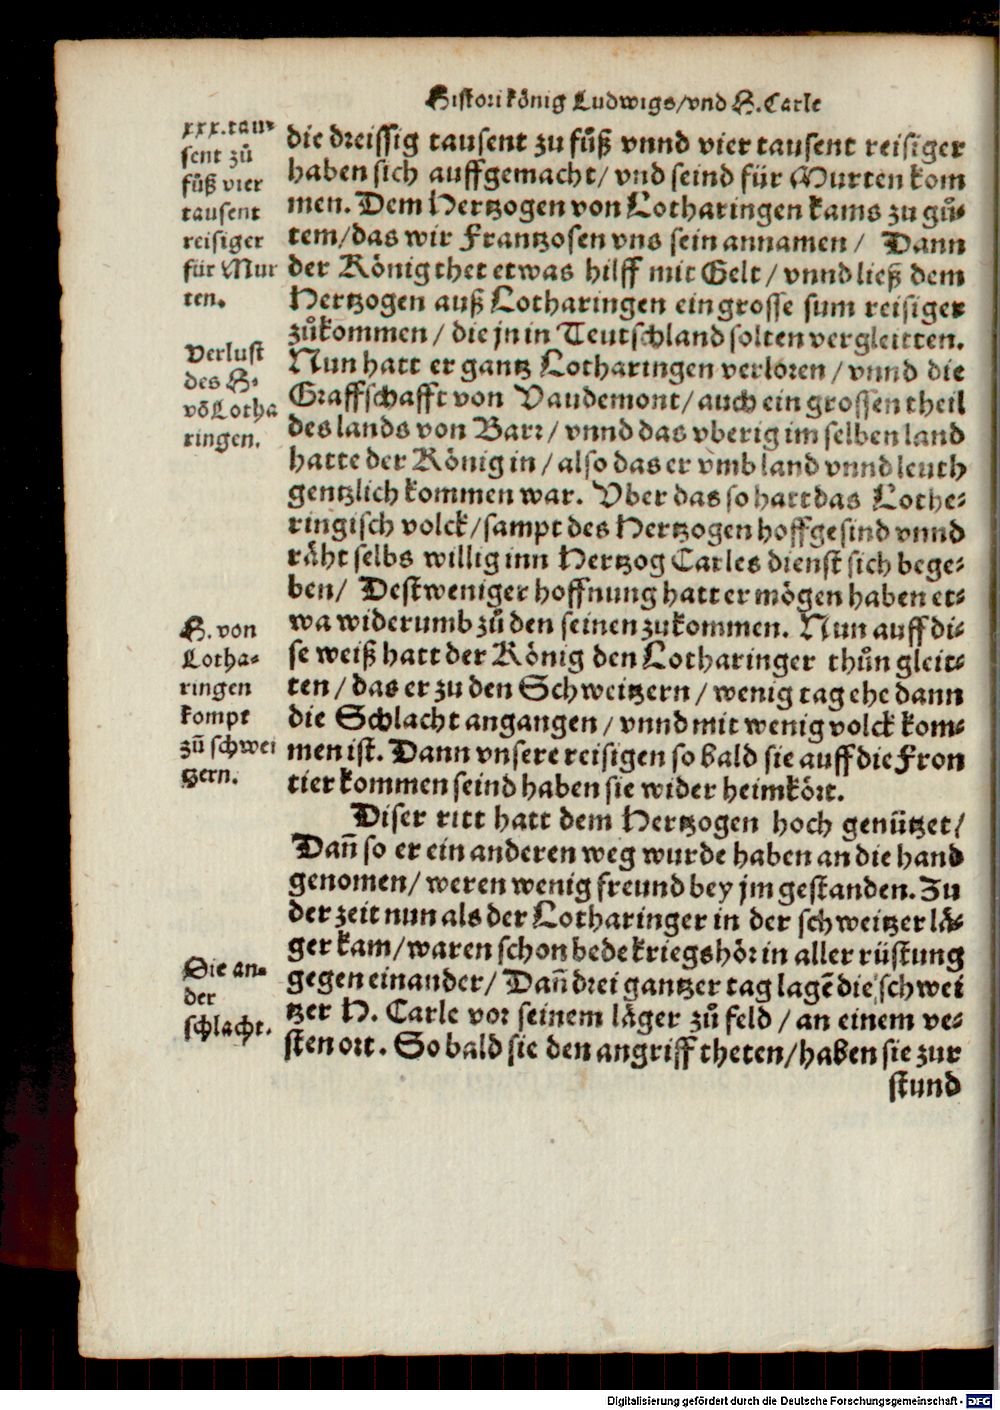 Histori König Ludwigs/vnd H. Carle
xxx.tau-
sent zů
fůß vier
tausent
reisiger
für Mur
ten.
die dreissig tausent zu fůß vnnd vier tausent reisiger
haben sich auffgemacht/ vnd seind für Murten kom
men. Dem Hertzogen von Lotharingen kams zu gů-
tem/das wir Frantzosen vns sein annamen/ Dann
der König thet etwas hilff mit Gelt/ vnnd ließ dem
Hertzogen auß Lotharingen ein grosse sum reisiger
zůkommen/ die jn in Teutschland solten vergleitten.
Verlust
des H.
võ Lotha
ringen.
Nun hatt er gantz Lotharingen verloren/ vnnd die
Graffschafft von Vaudemont/ auch ein grossen theil
des lands von Barr/ vnnd das vberig im selben land
hatte der König in/ also das er vmb land vnnd leuth
gentzlich kommen war. Vber das so hatt das Lothe-
ringisch volck/sampt des Hertzogen hoffgesind vnnd
räht selbs willig inn Hertzog Carles dienst sich bege-
ben/ Destweniger hoffnung hatt er mögen haben et-
wa widerumb zů den seinen zukommen. Nun auff di-
H. von
Lotha-
ringen
kompt
zů schwei
tzern.
se weiß hatt der König den Lotharinger thůn gleit-
ten/ das er zu den Schweitzern/ wenig tag ehe dann
die Schlacht angangen/ vnnd mit wenig volck kom-
men ist. Dann vnsere reisigen so bald sie auff die Fron
tier kommen seind haben sie wider heimkört.
Diser ritt hatt dem Hertzogen hoch genützet/
Dañ so er ein anderen weg wurde haben an die hand
genomen/ weren wenig freund bey jm gestanden. Zu
der zeit nun als der Lotharinger in der schweitzer lä-
ger kam/waren schon bede kriegshör in aller rüstung
Die an-
der
schlacht.
gegen einander/ Dañ drei gantzer tag lagẽ die schwei
tzer H. Carle vor seinem läger zů feld/ an einem ve-
sten ort. So bald sie den angriff theten/haben sie zur
stund
Digitalisierung gefördert durch die Deutsche Forschungsgemeinschaft - DFG